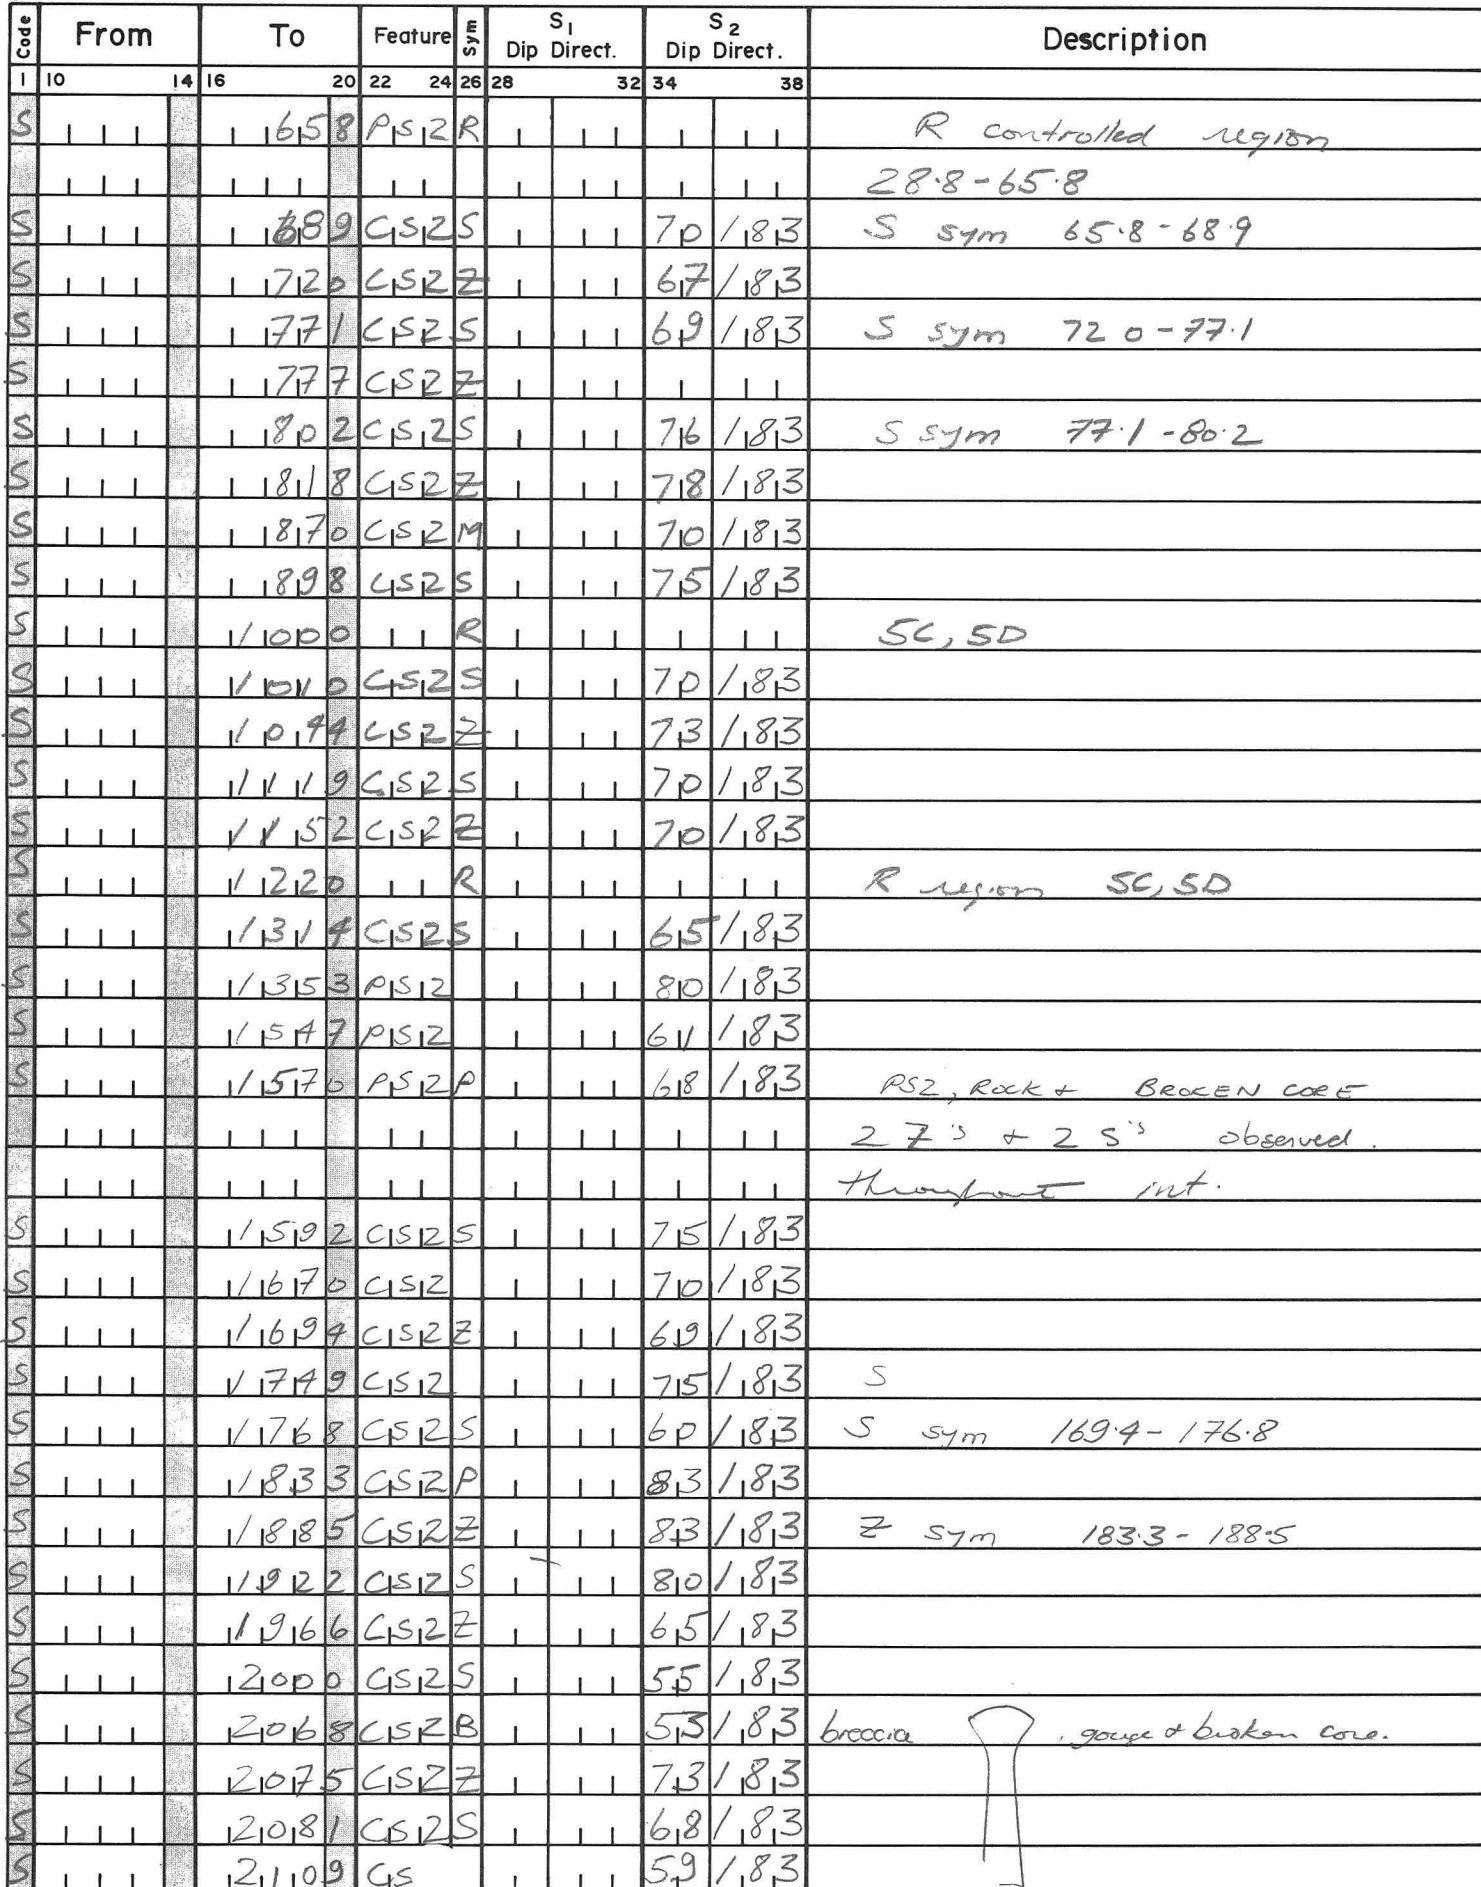 Code From To Feature Sym S1 Dip Direct. S2 Dip Direct. Description
1 10 14 16 20 22 24 26 28 32 34 38
S 658 PS2 R R controlled region
28.8-65.8
S 689 CS2 S 70/83 S sym 65.8-68.9
S 720 CS2 Z 67/83
S 771 CS2 S 69/83 S sym 72 0-77.1
S 777 CS2 Z
S 802 CS2 S 76/83 S sym 77.1-80.2
S 818 CS2 Z 78/83
S 870 CS2 M 70/83
S 898 CS2 S 75/83
S 1000 R 5C, 5D
S 1010 CS2 S 70/83
S 1044 CS2 Z 73/83
S 1119 CS2 S 70/83
S 1152 CS2 Z 70/83
S 1220 R R region 5C, 5D
S 1314 CS2 S 65/83
S 1353 PS2 80/83
S 1547 PS2 61/83
S 1570 PS2 P 68/83 PS2, ROCK + BROKEN CORE
2 Z's + 2 S's observed.
throughout int.
S 1592 CS2 S 75/83
S 1670 CS2 70/83
S 1694 CS2 Z 69/83
S 1749 CS2 75/83 S
S 1768 CS2 S 60/83 S sym 169.4-176.8
S 1833 CS2 P 83/83
S 1885 CS2 Z 83/83 Z sym 183.3-188.5
S 1922 CS2 S 80/83
S 1966 CS2 Z 65/83
S 2000 CS2 S 55/83
S 2068 CS2 B 53/83 breccia gouge & broken core.
S 2075 CS2 Z 73/83
S 2081 CS2 S 68/83
S 2109 CS 59/83